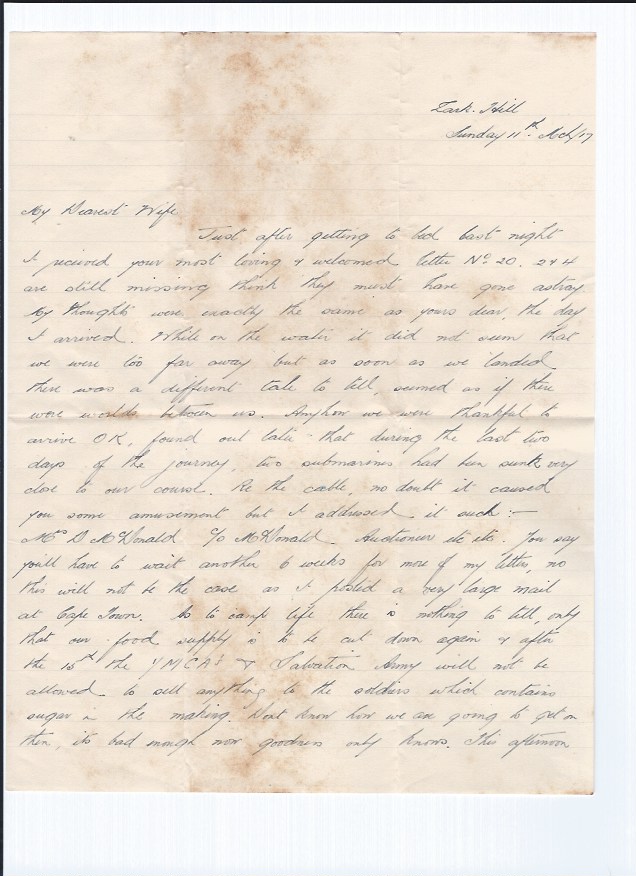 Lark Hill
Sunday 11th Mch/17
My Dearest Wife
Just after getting to bed last night
I received your most loving & welcomed letter No. 20. 2 & 4
are still missing think they must have gone astray
My thoughts were exactly the same as yours dear, the day
I arrived. While on the water it did not seem that
we were too far away but as soon as we landed
there was a different tale to tell, seemed as if there
were worlds between us. Anyhow we were thankful to
arrive OK, found out later that during the last two
days of the journey, two submarines had been sunk very
close to our course. Re the cable, no doubt it caused
you some amusement but I addressed it such :-
Mrs D McDonald C/o McDonald Auctioneer etc etc. You say
you'll have to wait another 6 weeks for more of my letters, no
this will not be the case as I posted a very large mail
at Cape Town. As to camp life there is nothing to tell, only
that our food supply is to be cut down again & after
the 15th the YMCA's & Salvation Army will not be
allowed to sell anything to the soldiers which contains
sugar in the making. Dont know how we are going to get on
then, its bad enough now goodness only knows. This afternoon